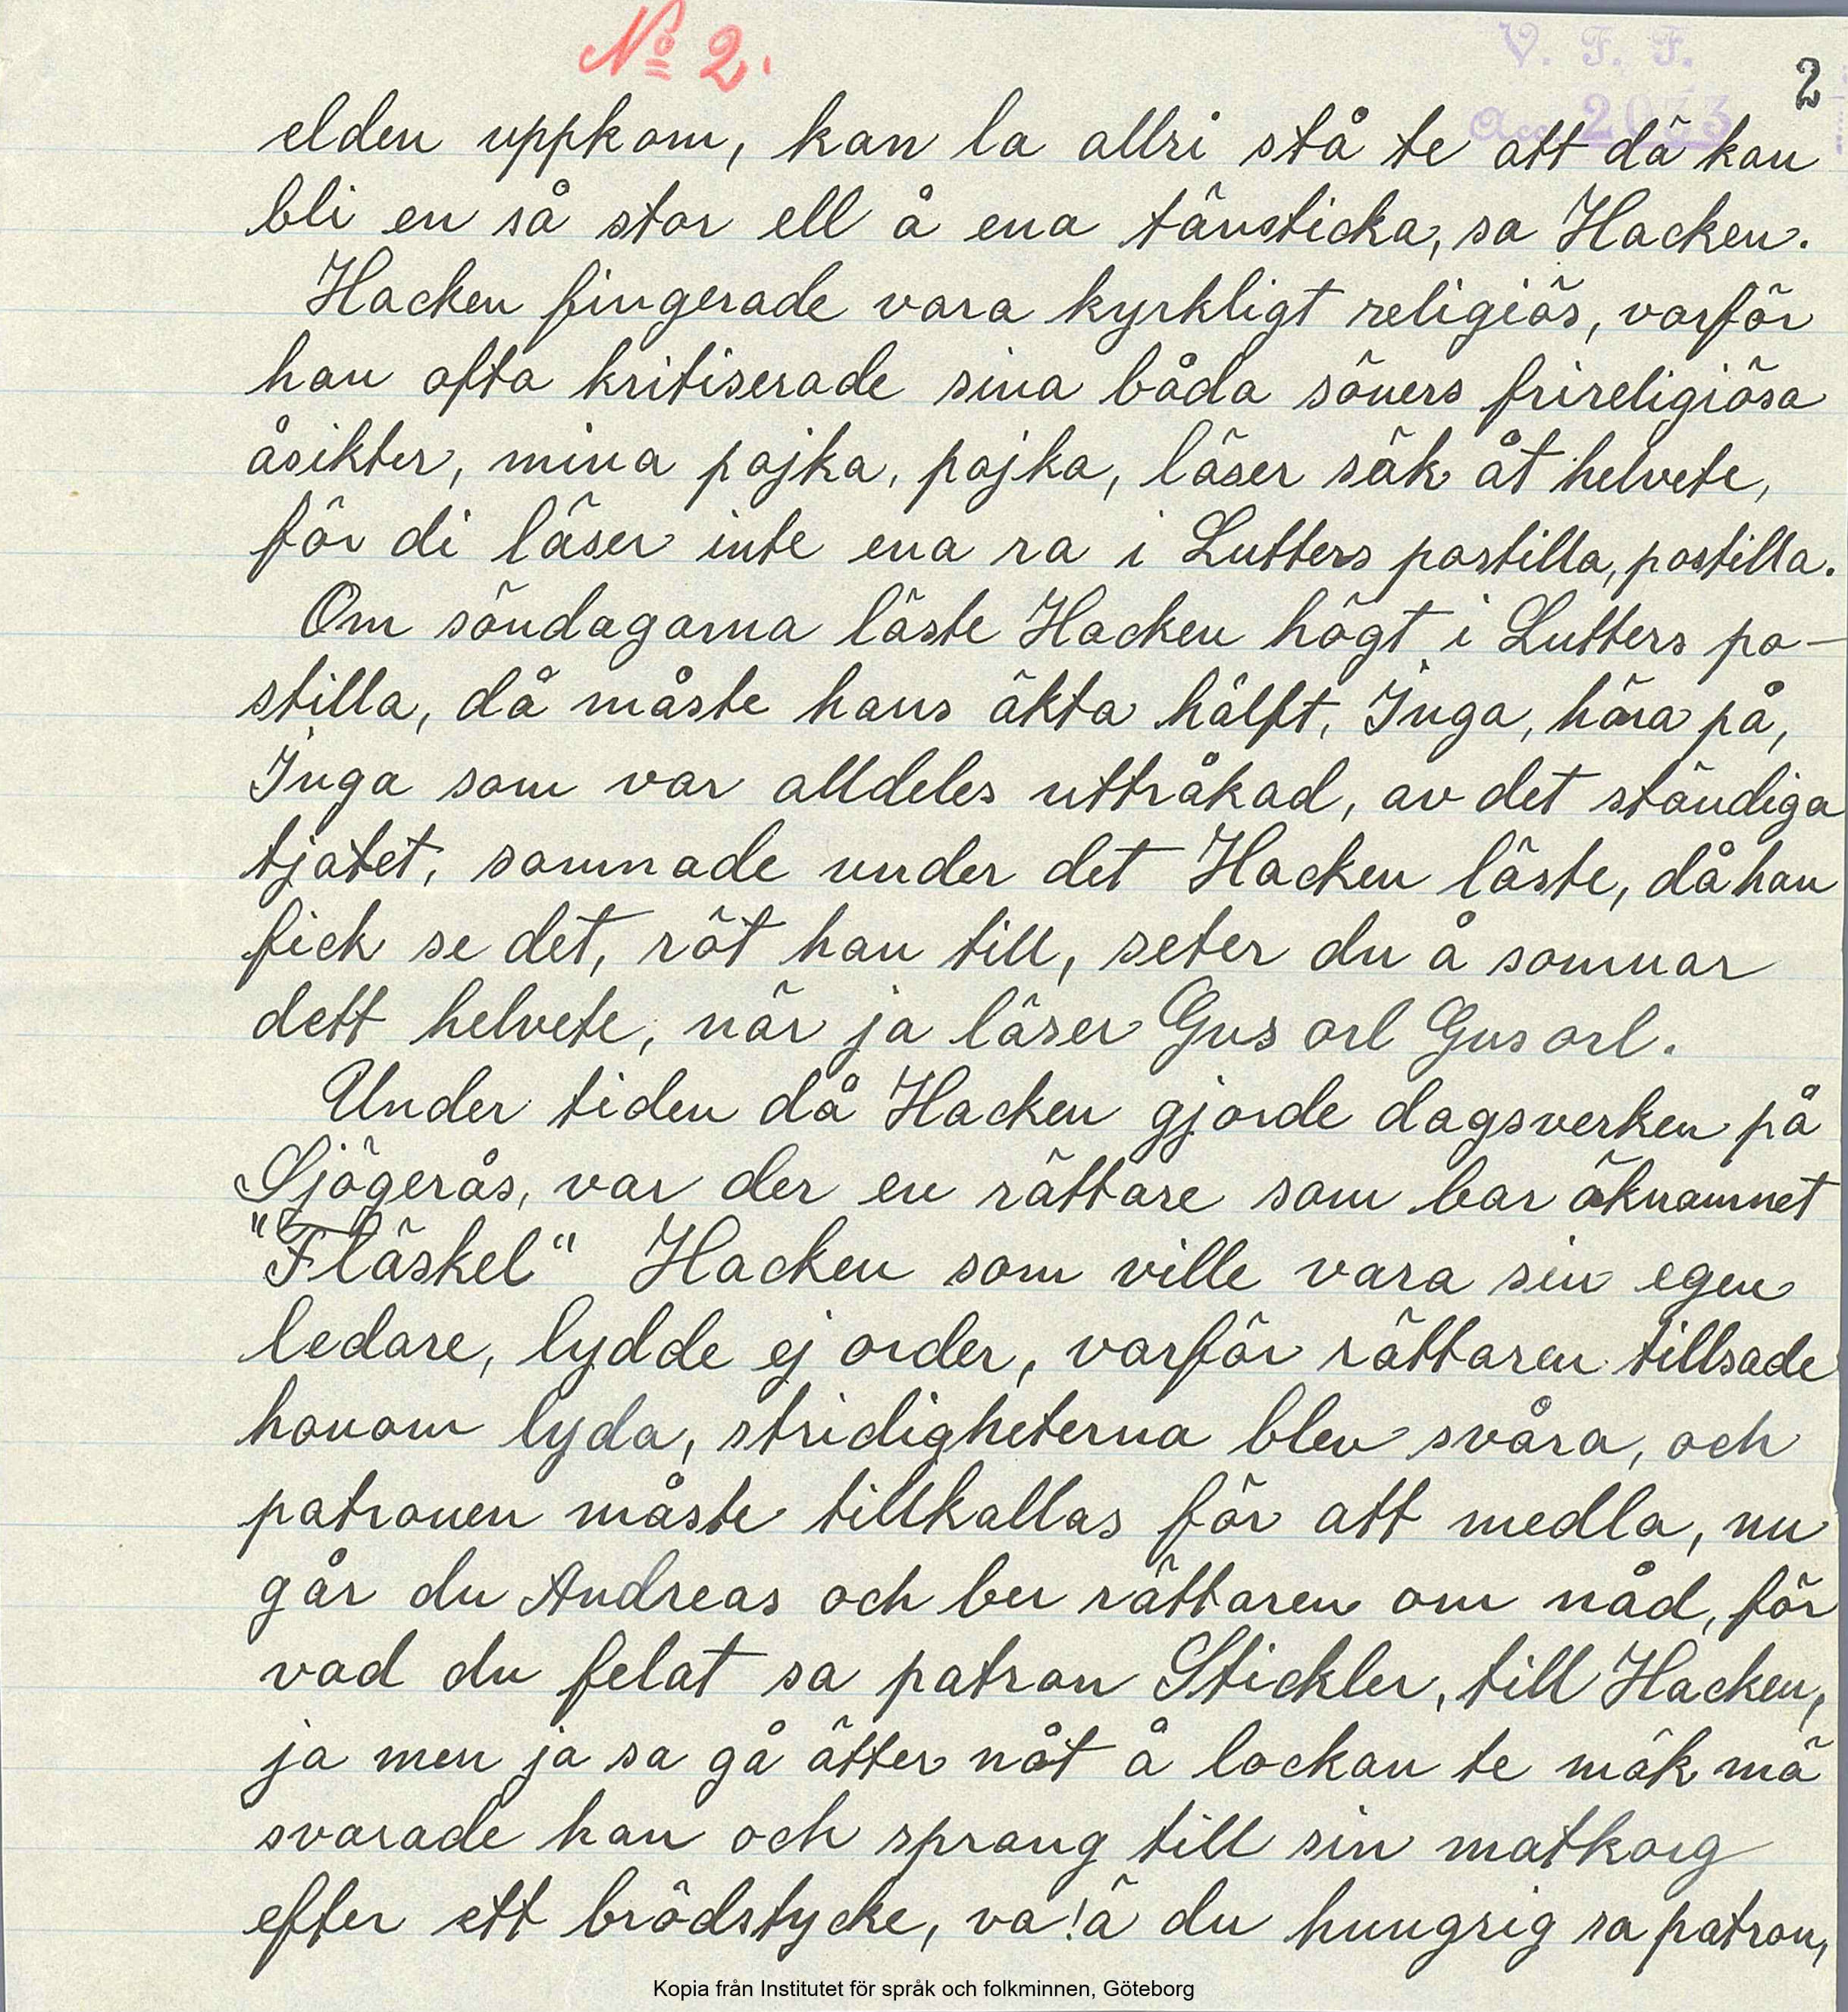 No 2.
V. F. F.
2
Acc. 2033
elden uppkom, kan la allri stå te att dä kan
bli en så stor ell å ena tänsticka, sa Hacken.
Hacken fingerade vara kyrkligt religiös, varför
han ofta kritiserade sina båda söners frireligiösa
åsikter, mina pojka, pojka, läser säk åt helvete,
för di läser inte ena ra i Lutters postilla, postilla.
Om söndagarna läste Hacken högt i Lutters po-
stilla, då måste hans äkta hälft, Inga, höra på,
Inga som var alldeles uttråkad, av det ständiga
tjatet, somnade under det Hacken läste, då han
fick se det, röt han till, seter du å somnar
dett helvete, när ja läser Gus orl Gus orl.
Under tiden då Hacken gjorde dagsverken på
Sjögerås, var der en rättare som bar öknamnet
"Fläskel" Hacken som ville vara sin egen
ledare, lydde ej order, varför rättaren tillsade
honom lyda, stridigheterna blev svåra, och
patronen måste tillkallas för att medla, nu
går du Andreas och ber rättaren om nåd, för
vad du felat sa patron Stickler, till Hacken,
ja men ja sa gå ätter nåt å lockan te mäk mä
svarade han och sprang till sin matkorg
efter ett brödstycke, va! ä du hungrig sa patron,
Kopia från Institutet för språk och folkminnen, Göteborg